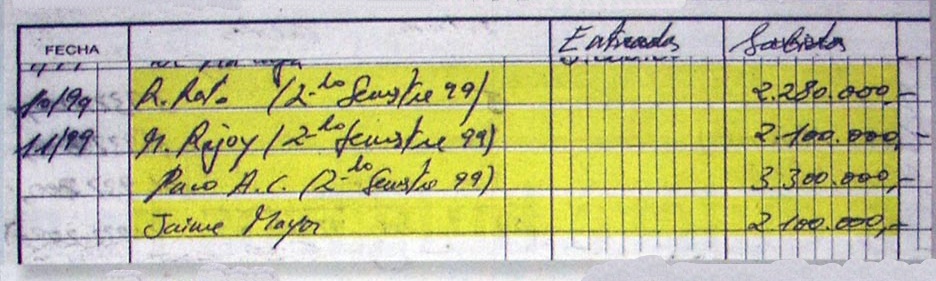 FECHA Entradas Salidas
10/99 R. Rato (2º Semestre 99) 2.280.000,-
11/99 M. Rajoy (2º Semestre 99) 2.100.000,-
Paco A.C. (2º Semestre 99) 3.300.000,-
Jaime Mayor 2.100.000,-